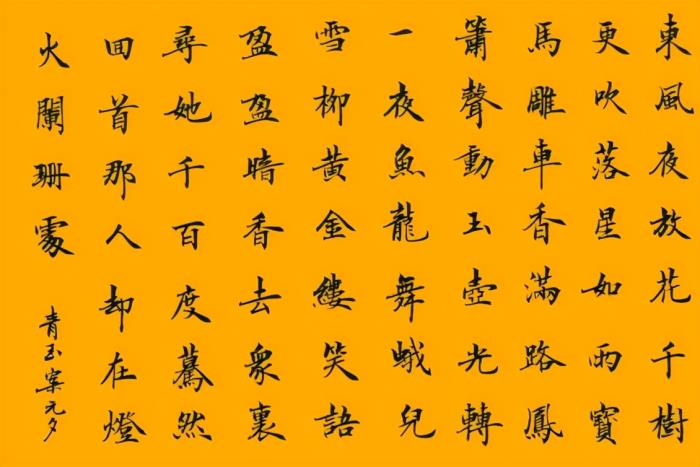 東風夜放花千樹
更吹落星如雨寶
馬雕車香滿路鳳
簫聲動玉壺光轉
一夜魚龍舞蛾兒
雪柳黃金縷笑語
盈盈暗香去衆裏
尋她千百度驀然
囬首那人却在燈
火闌珊處
青玉案元夕